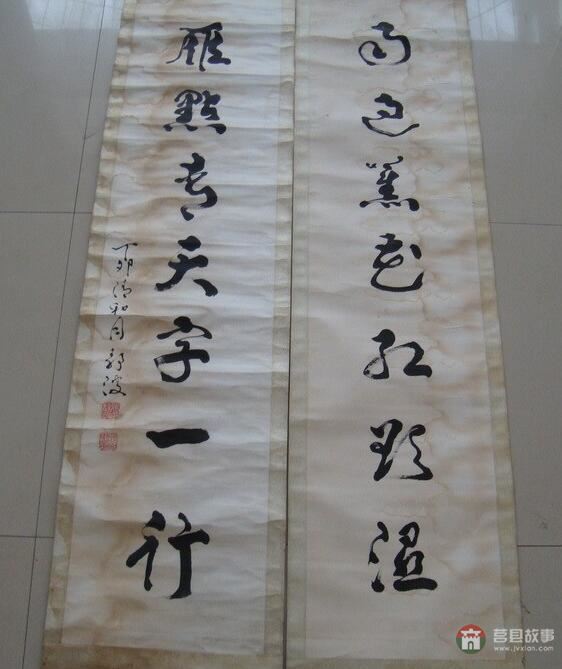 雨過蕉花紅濕
雁點青天字一行
丁卯清和月 郭波
莒县故事
www.jvxian.com